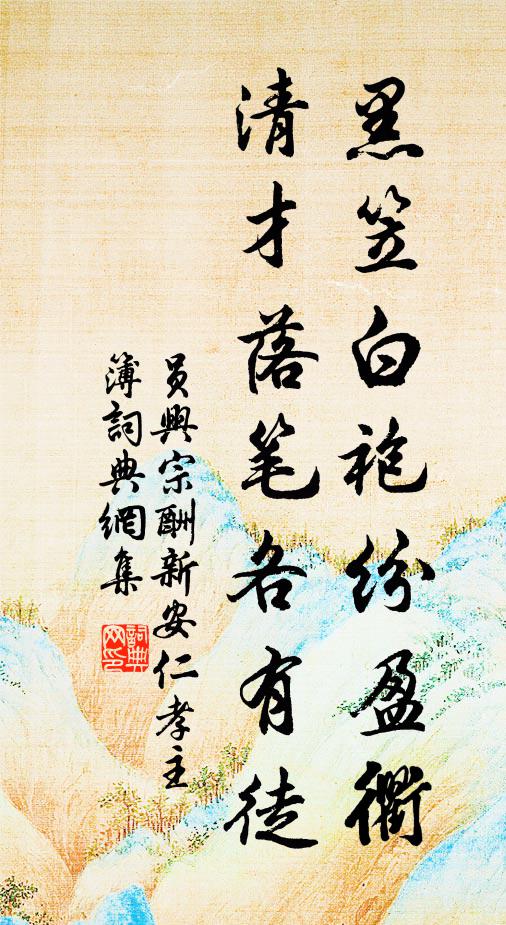 黑笠白袍纷盈衢
清才落笔各有徒
员興宗酬新安仁孝主
簿詞典網集
詞典網印